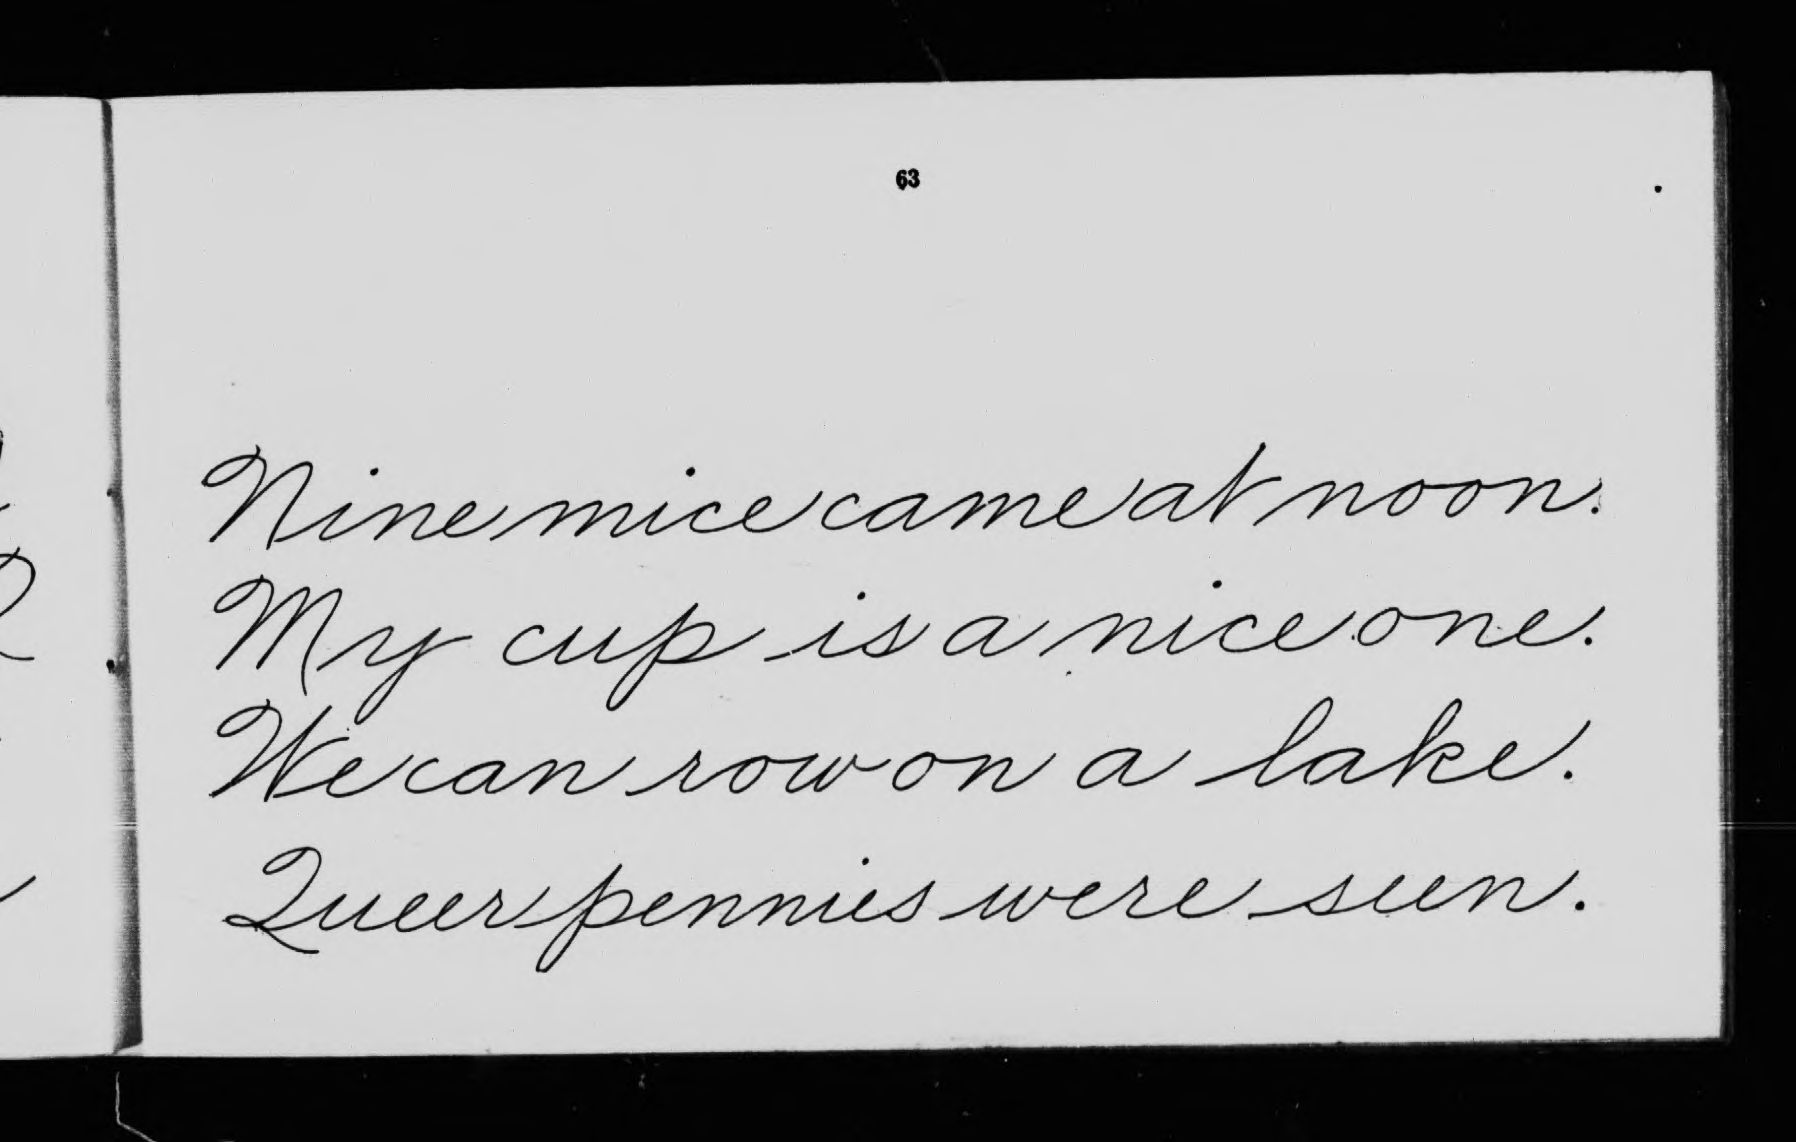 63
Nine mice came at noon.
My cup is a nice one.
We can row on a lake.
Queer pennies were seen.